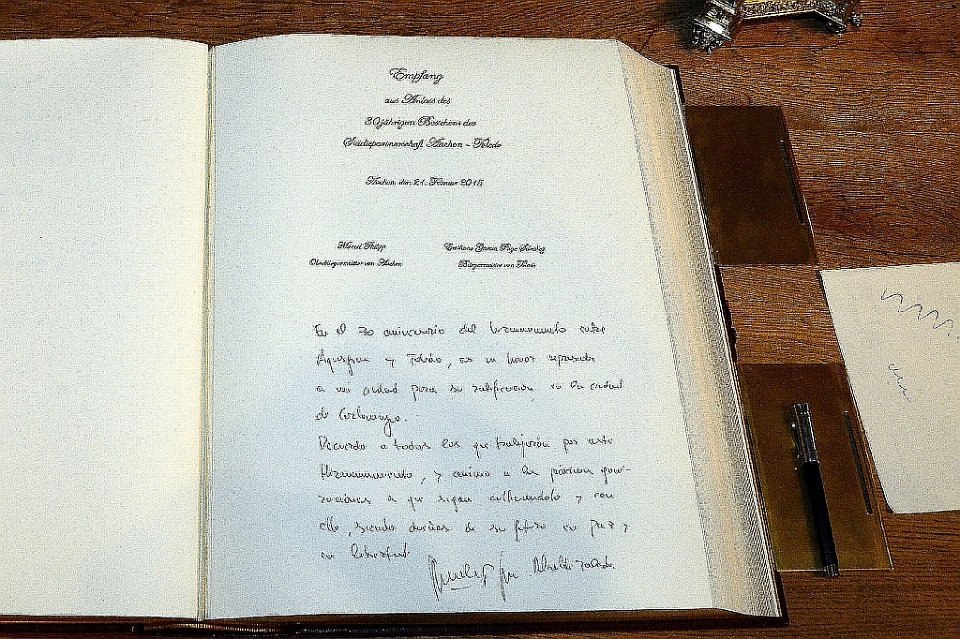 Empfang
aus Anlass des
30jährigen Bestehens der
Städtepartnerschaft Aachen - Toledo
Aachen, den 21. Februar 2015
Marcel Philipp
Oberbürgermeister von Aachen
Bürgermeister von Toledo
En el 30 aniversario del hermanamiento entre
Aquisgran y Toledo, es un honor representar
a mi ciudad para su ratificación en la ciudad
de Carlomagno.
Recuerdo a todos los que trabajaron por este
Hermanamiento, y animo a las próximas gene-
raciones a que sigan cultivandolo y con
ello, siendo dueñas de su futuro en paz y
en libertad.
Alcalde Toledo.